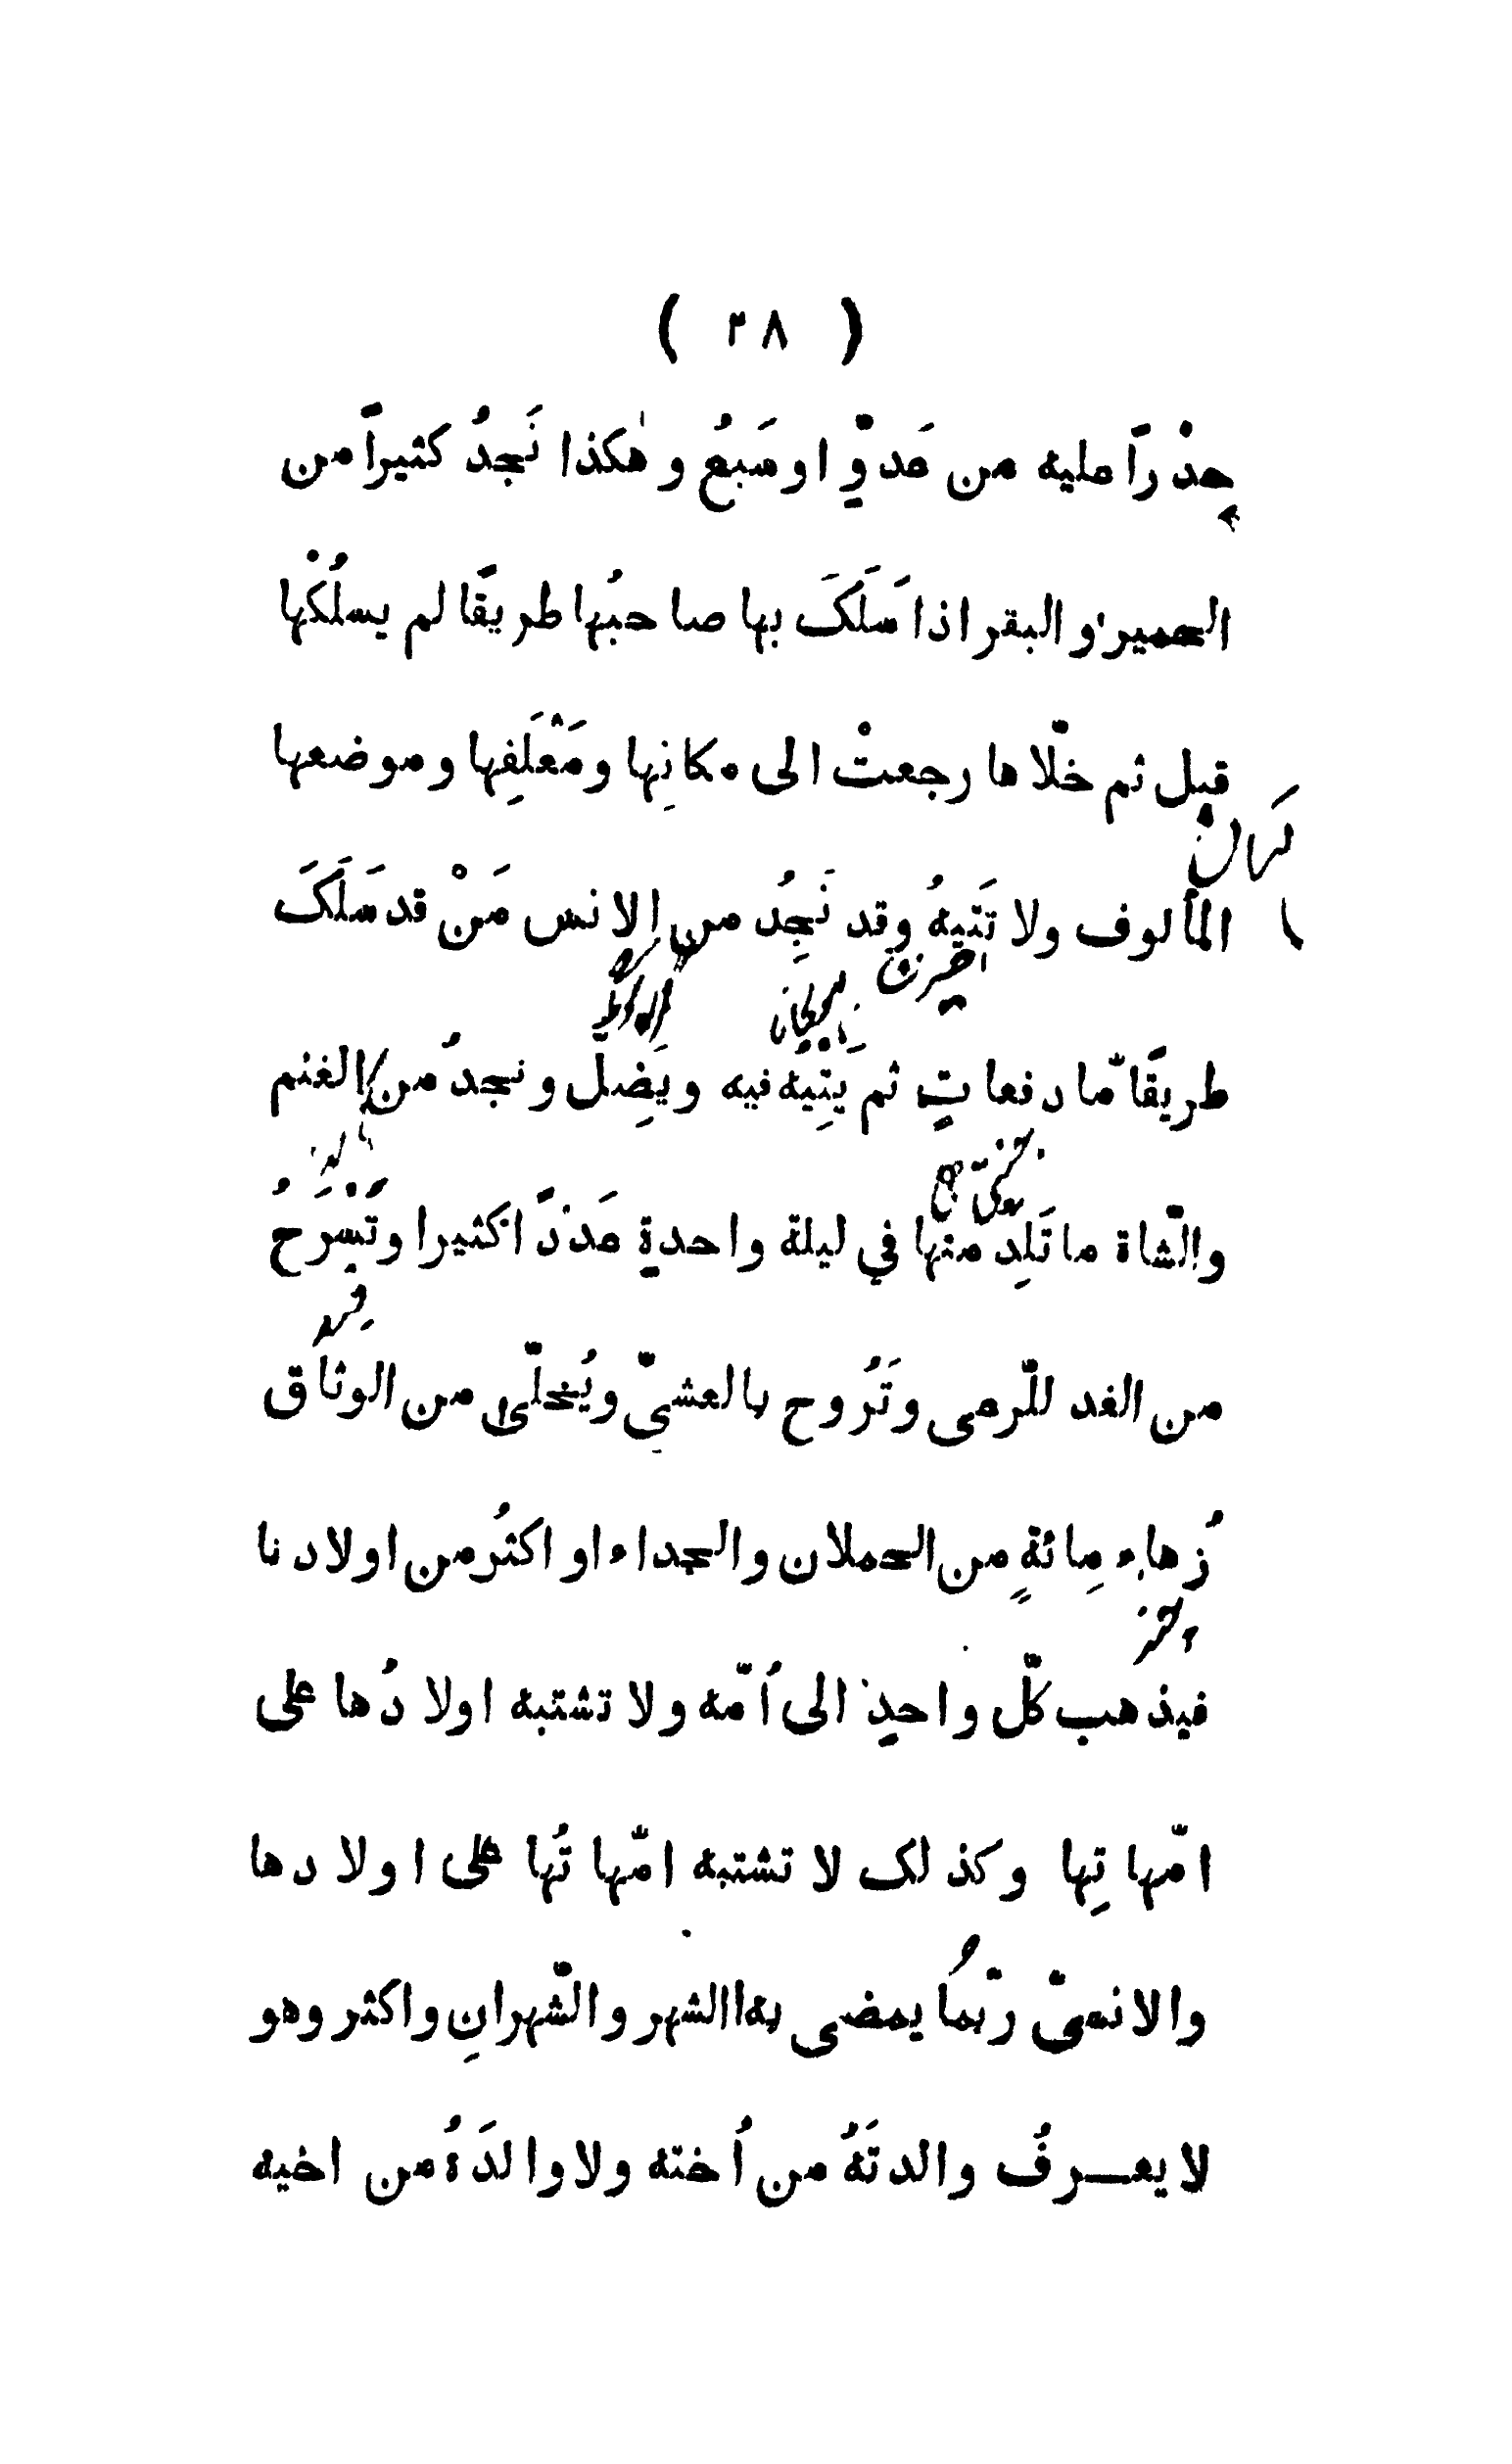 ( ٣٨ )
حِذْراً عليه من عَدوٍّ او سَبُعٍ و هٰكذا نَجدُ كثيراً من
الحمير و البقر اذا سَلَكَ بها صاحبُها طريقًا لم يسلُكْها
قبل ثم خلّاها رجعتْ الى مكانِها ومَعْلَفِها وموضعها
المألوف ولا تَتيهُ وقد نَجِدُ من الانس مَنْ قد سَلَكَ
طريقًا مّا دفعاتٍ ثم يَتِيهُ فيه ويَضِلّ ونجدُ من الغنم
والشّاة ما تَلِد منها في ليلة واحدةٍ عَدَدًا كثيرا وتَسْرَحُ
من الغد للّرعى وتَرُوح بالعشيّ ويُخلّى من الوثاق
زُهاء مِائةٍ من الحملان والجداء او اكثرُ من اولادنا
فيذهب كلّ واحدٍ الى اُمّه ولا تشتبه اولادُها على
امّهاتِها وكذلك لا تشتبه امّهاتُها على اولادها
والانسىّ ربّما يمضى به الشهر والشّهرانِ واكثر وهو
لا يعرفُ والدتَهُ من اُخته ولا والدَهُ من اخيه